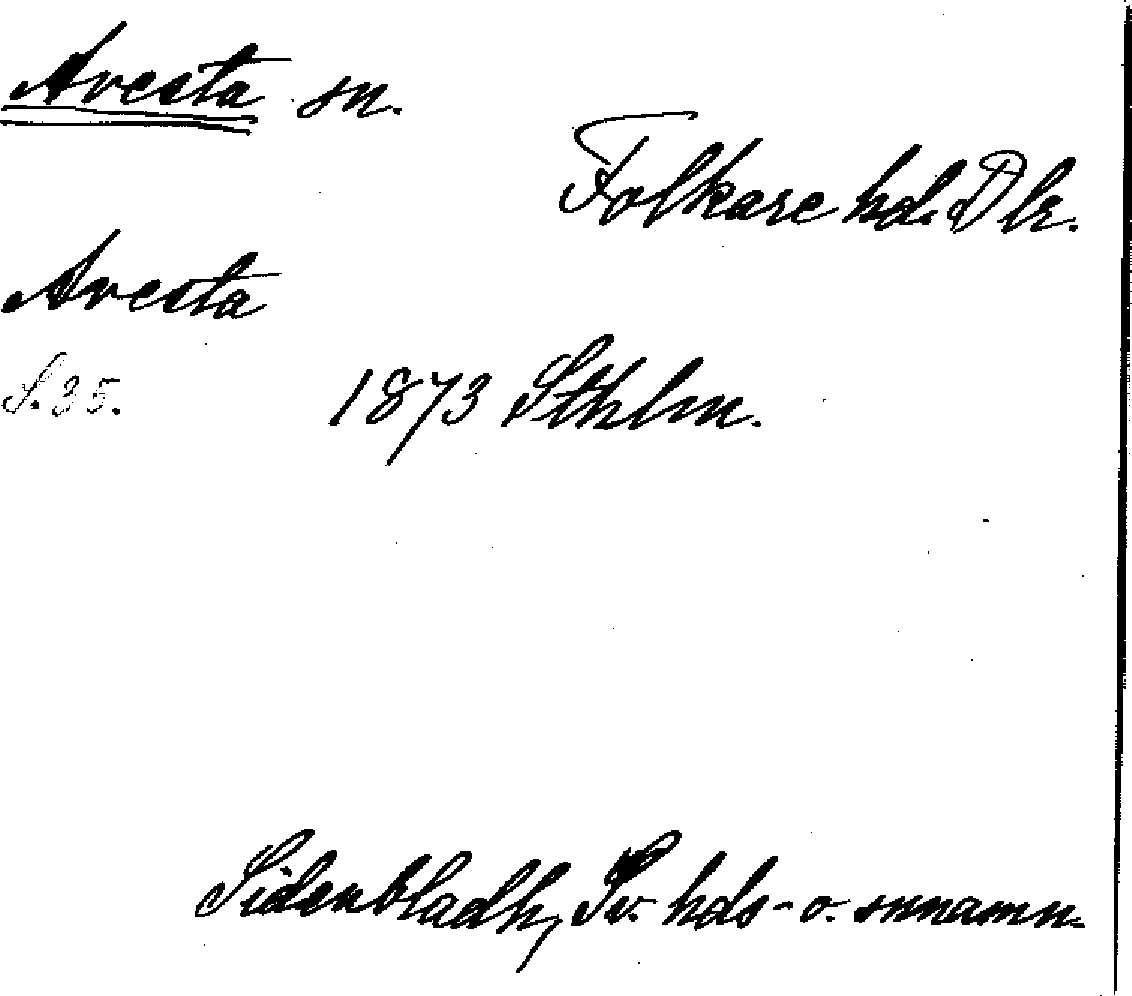 Avesta sn.
Folkare hd. Dlr.
Avesta
S. 35.
1873 Sthlm.
Sidenbladh, Sv. hds- o. snnamn.